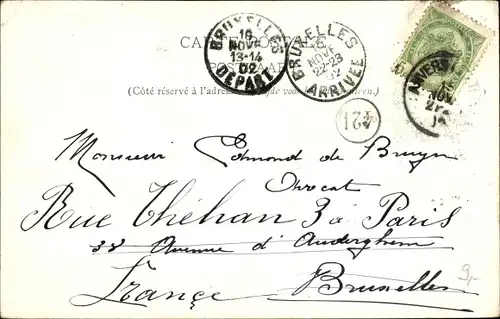 CARTE POSTALE
(Côté réservé à l'adresse
BRUXELLES
16
NOVE
13-14
02
DEPART
BRUXELLES
NOVE
22-23
02
ARRIVEE
421
Monsieur Edmond de Bruyn
Avocat
Rue Théhan 3 à Paris
38 Avenue d'Auderghem
France Bruxelles
9,-